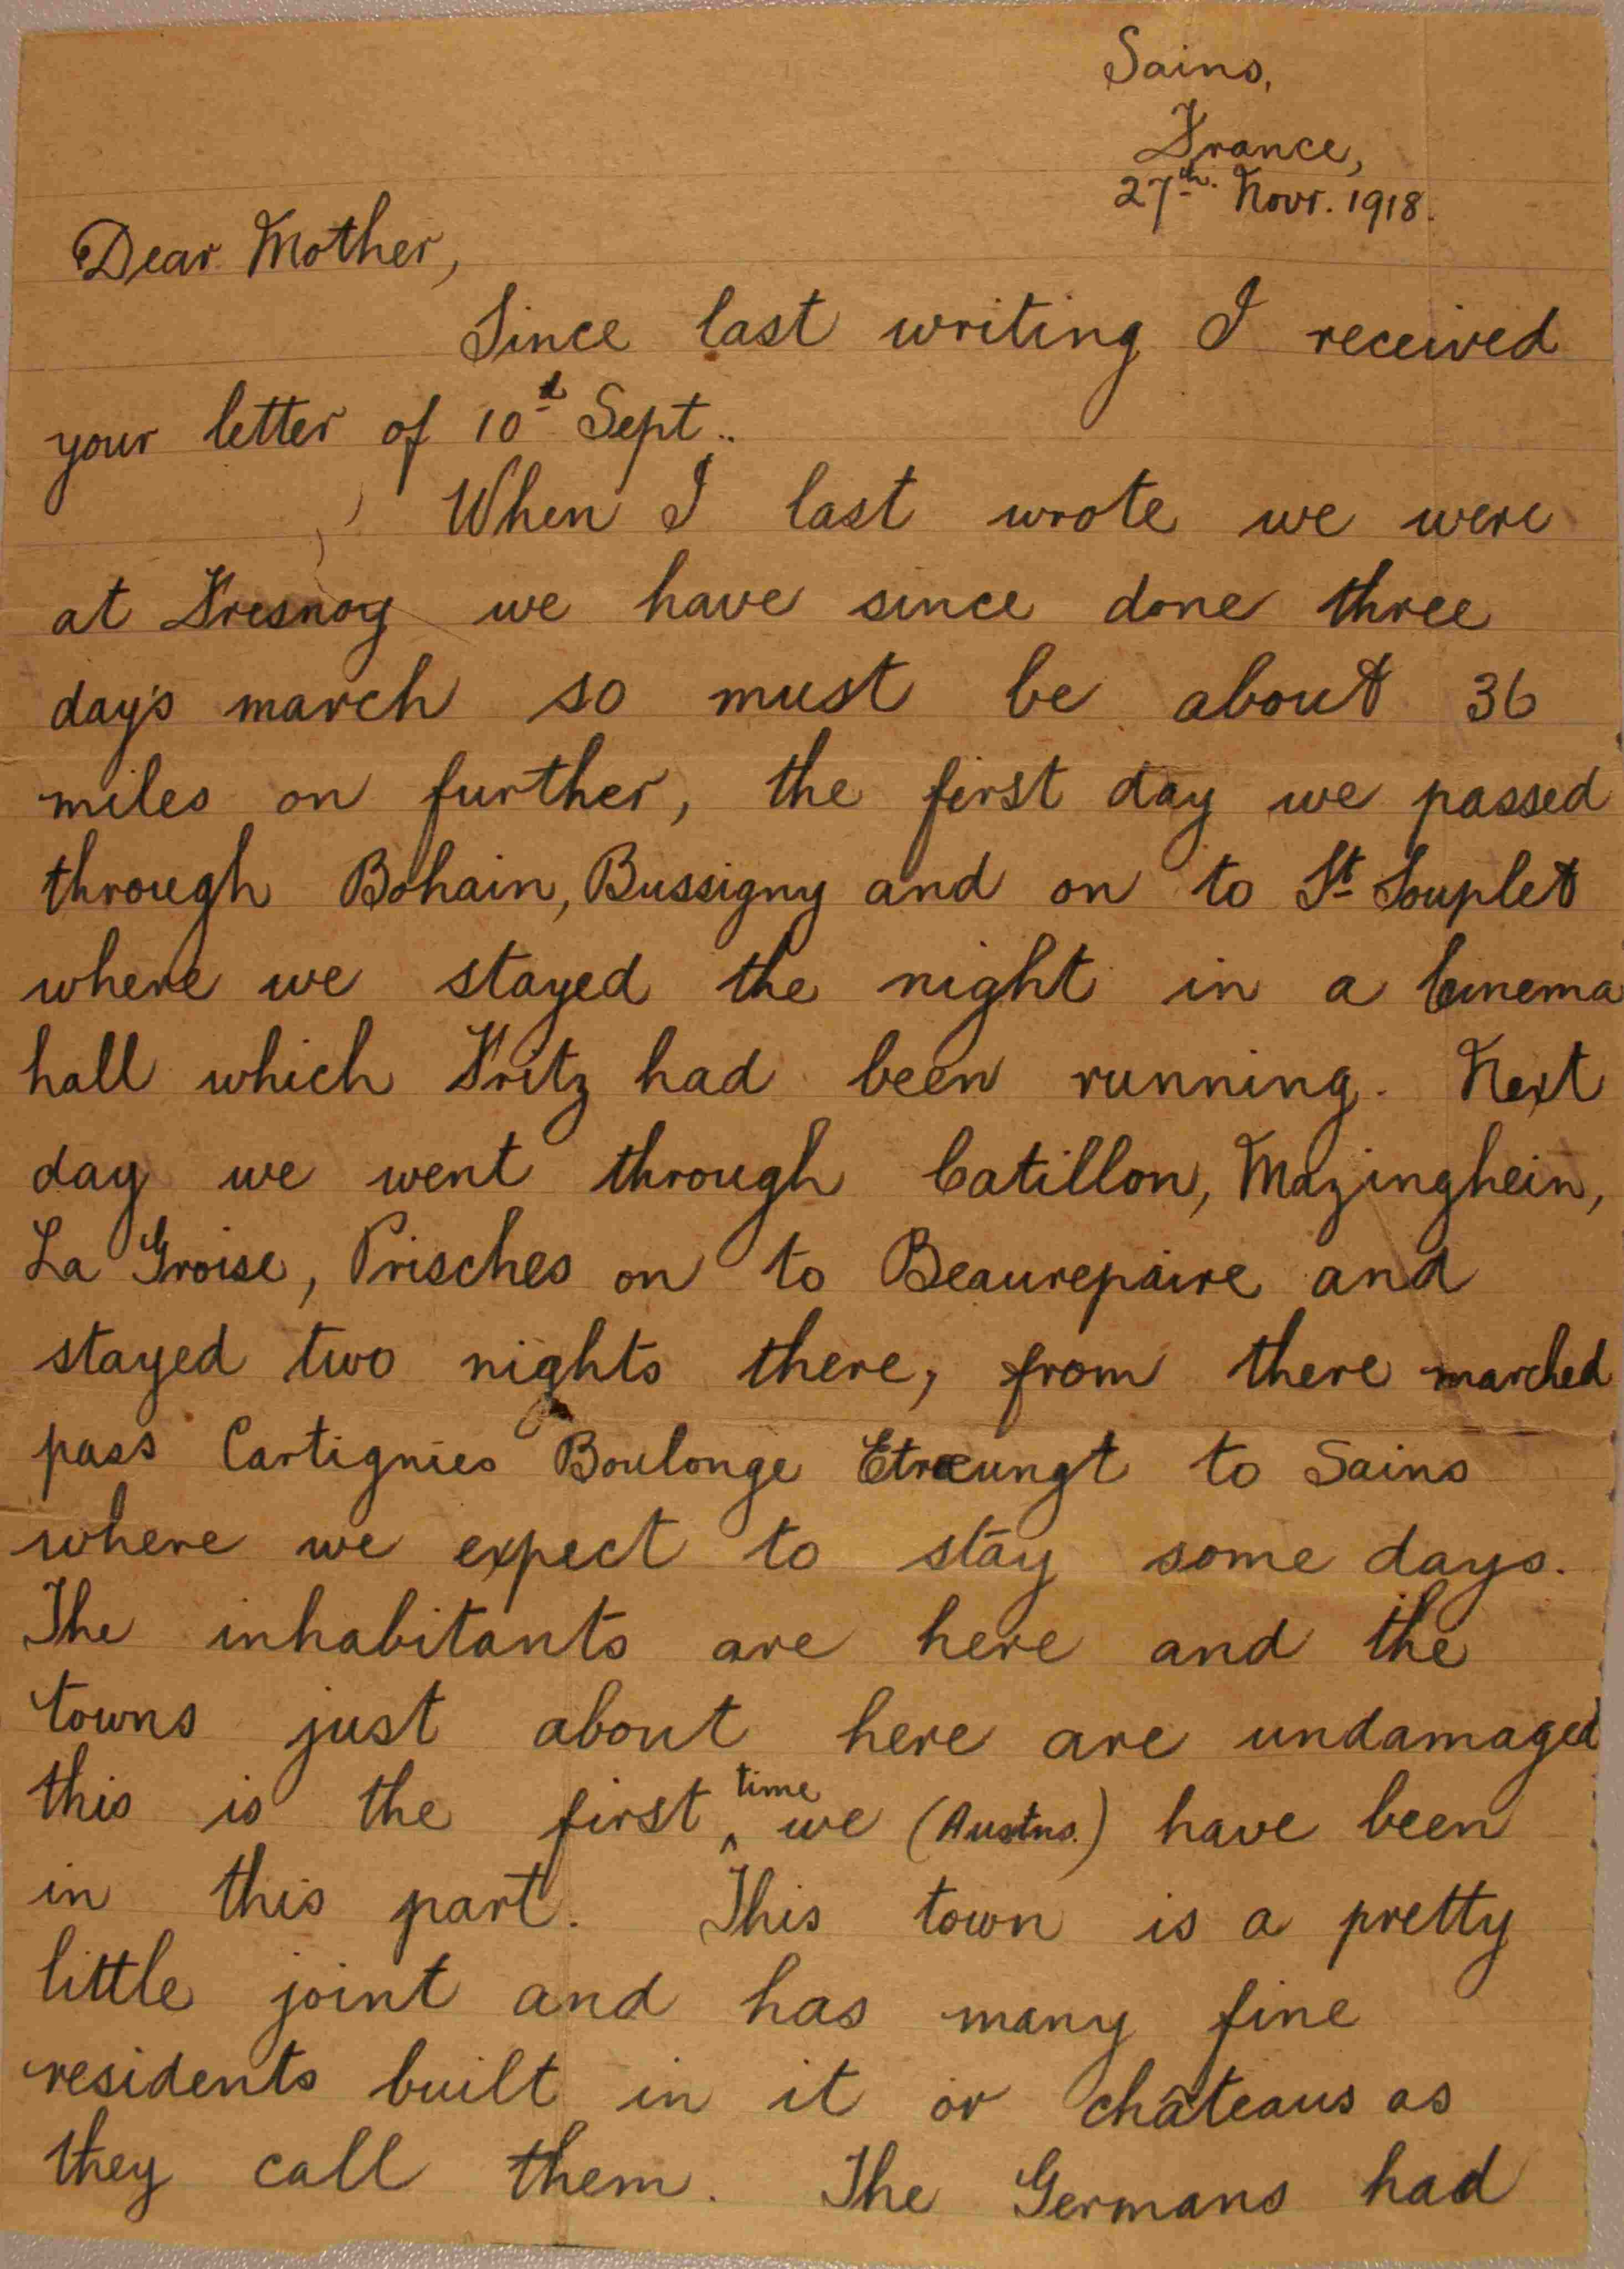 Sains,
France,
27th. Novr. 1918.
Dear Mother,
Since last writing I received
your letter of 10th Sept..
When I last wrote we were
at Fresnoy we have since done three
day's march so must be about 36
miles on further, the first day we passed
through Bohain, Bussigny and on to St Souplet
where we stayed the night in a Cinema
hall which Fritz had been running. Next
day we went through Catillon, Mazinghein,
La Groise, Prisches on to Beaurepaire and
stayed two nights there, from there marched
pass Cartignies Boulonge Etrœungt to Sains
where we expect to stay some days.
The inhabitants are here and the
towns just about here are undamaged
this is the first time we (Austns.) have been
in this part. This town is a pretty
little joint and has many fine
residents built in it or châteaus as
they call them. The Germans had